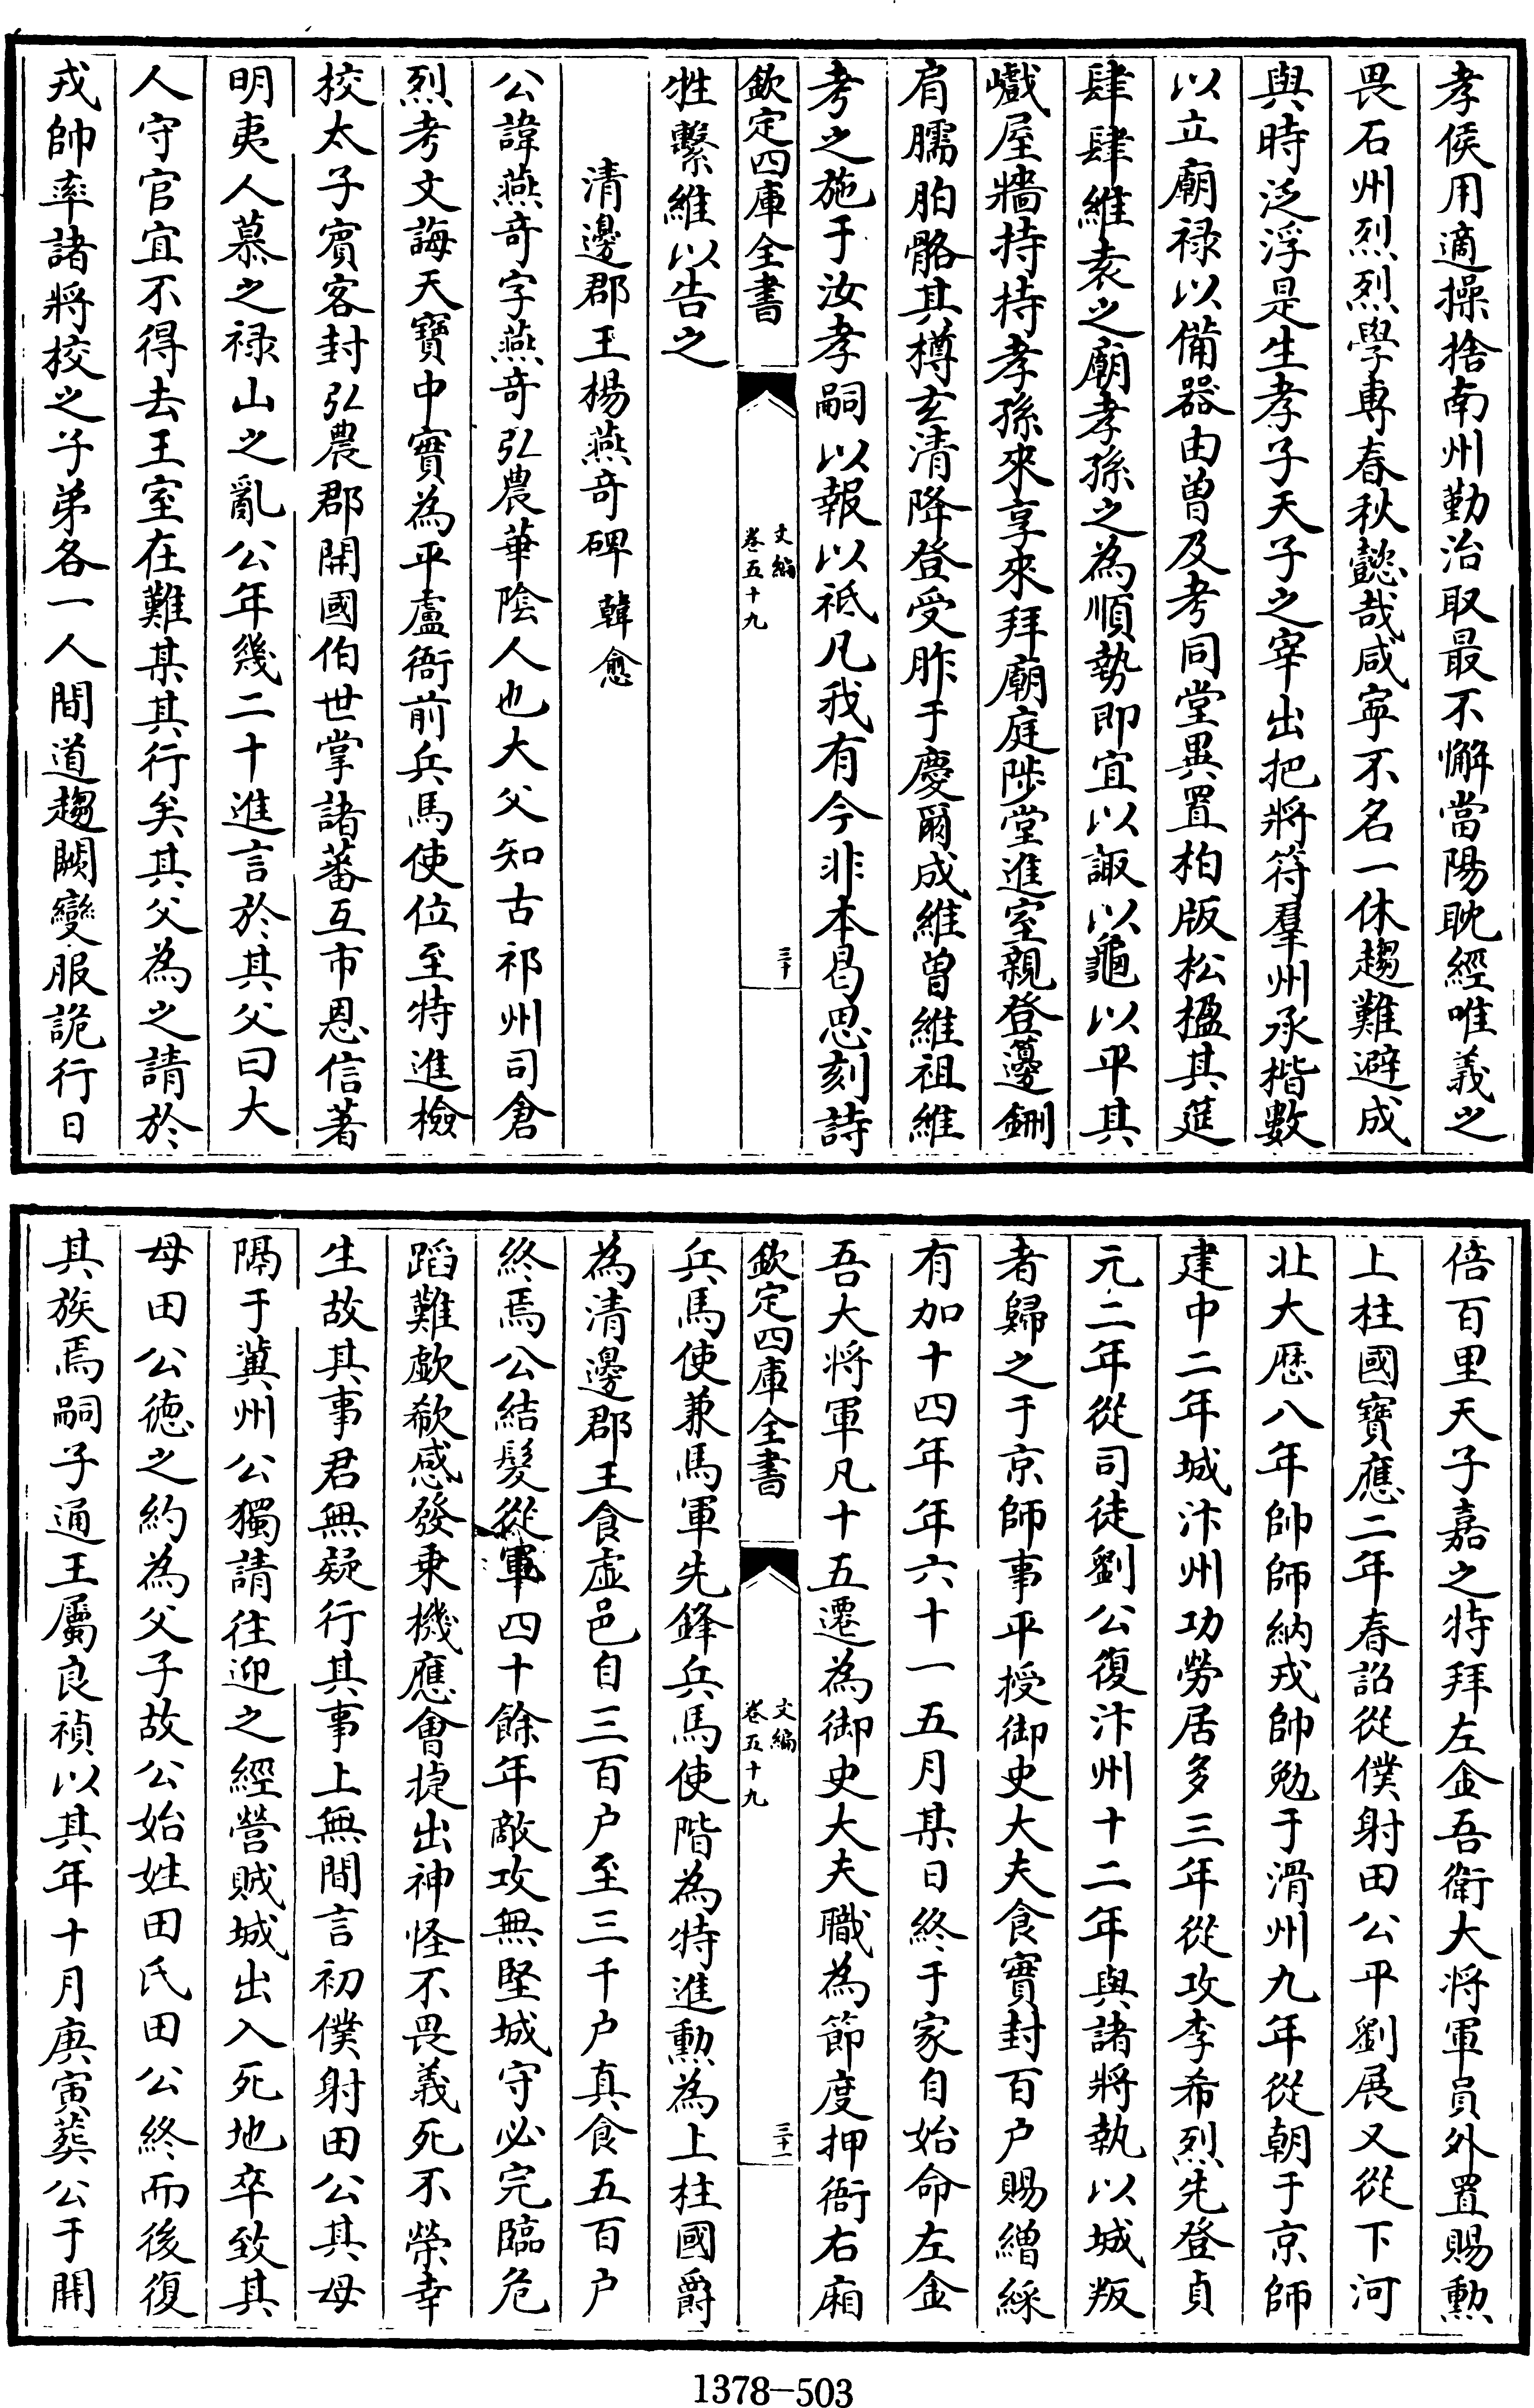 孝侯用適操捨南州勤治取最不懈當陽耽經唯義之
畏石州烈烈學專春秋懿哉咸寧不名一休趨難避成
與時泛浮是生孝子天子之宰出把將符羣州承楷數
以立廟祿以備器由曾及考同堂異置柏版松楹其筵
肆肆維袁之廟孝孫之為順勢即宜以諏以龜以平其
巇屋牆持持孝孫來享來拜廟庭陟堂進室親登籩鉶
肩臑胉骼其樽玄清降登受胙于慶爾成維曾維祖維
考之施于汝孝嗣以報以祇凡我有今非本曷思刻詩
欽定四庫全書
文編
卷五十九
三十
牲繫維以告之
清邊郡王楊燕奇碑 韓愈
公諱燕奇字燕奇弘農華陰人也大父知古祁州司倉
烈考文誨天寶中實為平盧衙前兵馬使位至特進檢
校太子賓客封弘農郡開國伯世掌諸蕃互市恩信著
明夷人慕之祿山之亂公年幾二十進言於其父曰大
人守官宜不得去王室在難某其行矣其父為之請於
戎帥率諸將校之子弟各一人間道趨闕變服詭行日
倍百里天子嘉之特拜左金吾衛大將軍員外置賜勲
上柱國寶應二年春詔從僕射田公平劉展又從下河
北大歴八年帥師納戎帥勉于滑州九年從朝于京師
建中二年城汴州功勞居多三年從攻李希烈先登貞
元二年從司徒劉公復汴州十二年與諸將執以城叛
者歸之于京師事平授御史大夫食實封百户賜繒綵
有加十四年年六十一五月某日終于家自始命左金
吾大將軍凡十五遷為御史大夫職為節度押衙右廂
欽定四庫全書
文編
卷五十九
三十一
兵馬使兼馬軍先鋒兵馬使階為特進勲為上柱國爵
為清邊郡王食虚邑自三百户至三千户真食五百户
終焉公結髮從軍四十餘年敵攻無堅城守必完臨危
蹈難歔欷感發乗機應會捷出神怪不畏義死不榮幸
生故其事君無疑行其事上無間言初僕射田公其母
隔于冀州公獨請往迎之經營賊城出入死地卒致其
母田公德之約為父子故公始姓田氏田公終而後復
其族焉嗣子通王屬良禎以其年十月庚寅葬公于開
1378-503